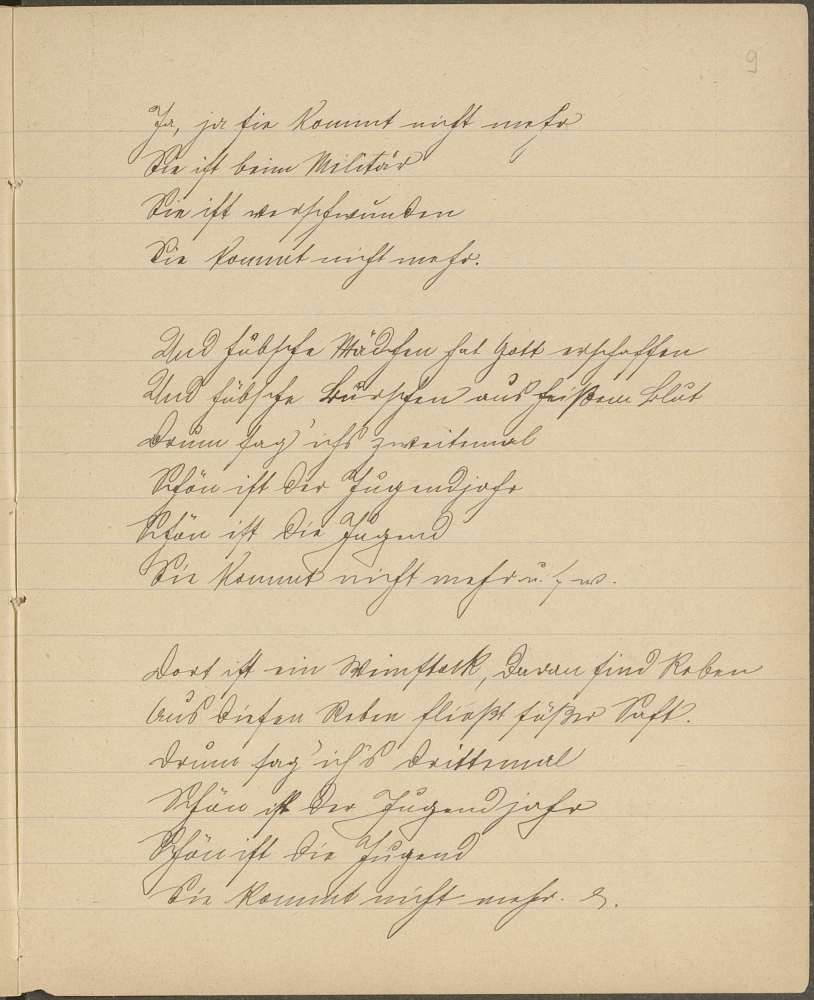 9
Ja, ja sie kommt nicht mehr
Sie ist beim Militär
Sie ist verschwunden
Sie kommt nicht mehr.
Und hübsche Mädchen hat Gott erschaffen
Und hübsche Burschen aus heißem Blut
Drum sag' ichs zweitemal
Schön ist der Jugendjahr
Schön ist die Jugend
Sie kommt nicht mehr u. s. w.
Dort ist ein Weinstock, daran sind Reben
Aus diesen Reben fließt süßer Saft.
Drum sag' ich's drittemal
Schön ist der Jugendjahr
Schön ist die Jugend
Sie kommt nicht mehr.